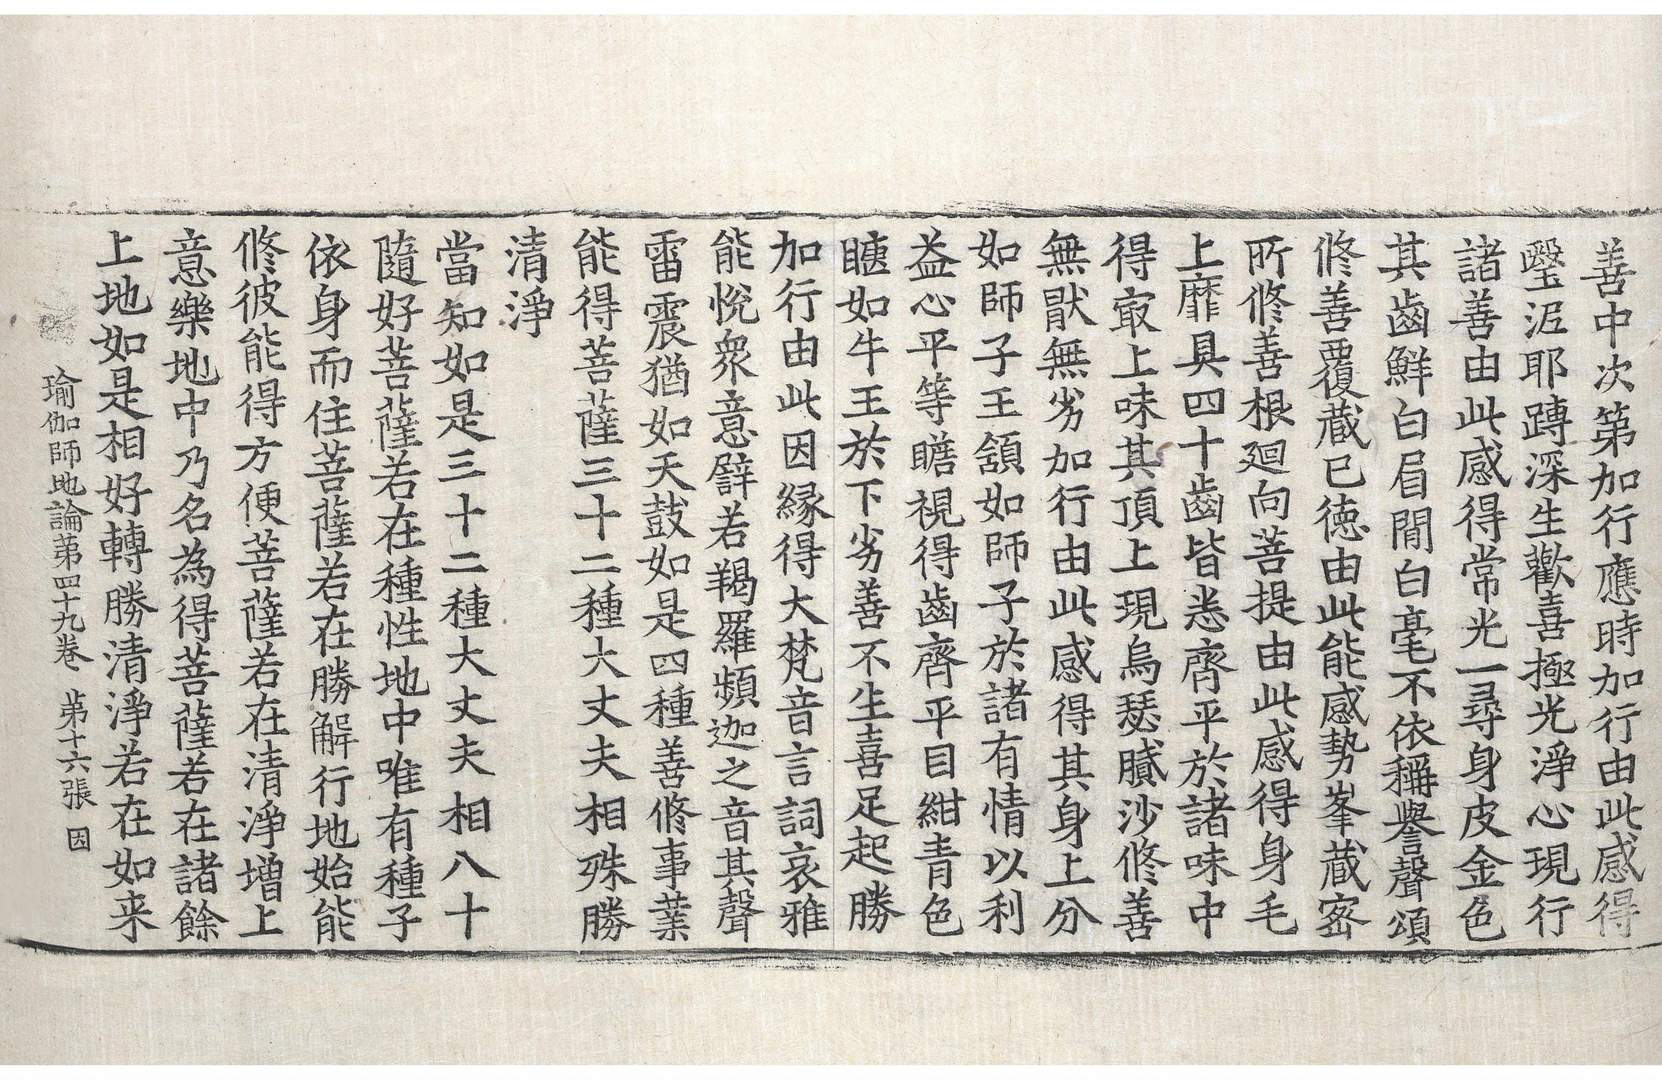 善中次第加行應時加行由此感得
瑿泥耶蹲深生歡喜極光淨心現行
諸善由此感得常光一尋身皮金色
其齒鮮白眉間白毫不依稱譽聲頌
修善覆藏已德由此能感勢峯藏宻
所修善根迴向菩提由此感得身毛
上靡具四十齒皆悉齊平於諸味中
得㝡上味其頂上現烏瑟膩沙修善
無猒無劣加行由此感得其身上分
如師子王頷如師子於諸有情以利
益心平等瞻視得齒齊平目紺青色
睫如牛王於下劣善不生喜足起勝
加行由此因縁得大梵音言詞哀雅
能悅衆意譬若羯羅頻迦之音其聲
雷震猶如天鼓如是四種善修事業
能得菩薩三十二種大丈夫相殊勝
清淨
當知如是三十二種大丈夫相八十
隨好菩薩若在種性地中唯有種子
依身而住菩薩若在勝解行地始能
修彼能得方便菩薩若在清淨增上
意樂地中乃名為得菩薩若在諸餘
上地如是相好轉勝清淨若在如来
瑜伽師地論苐四十九卷 苐十六張 因